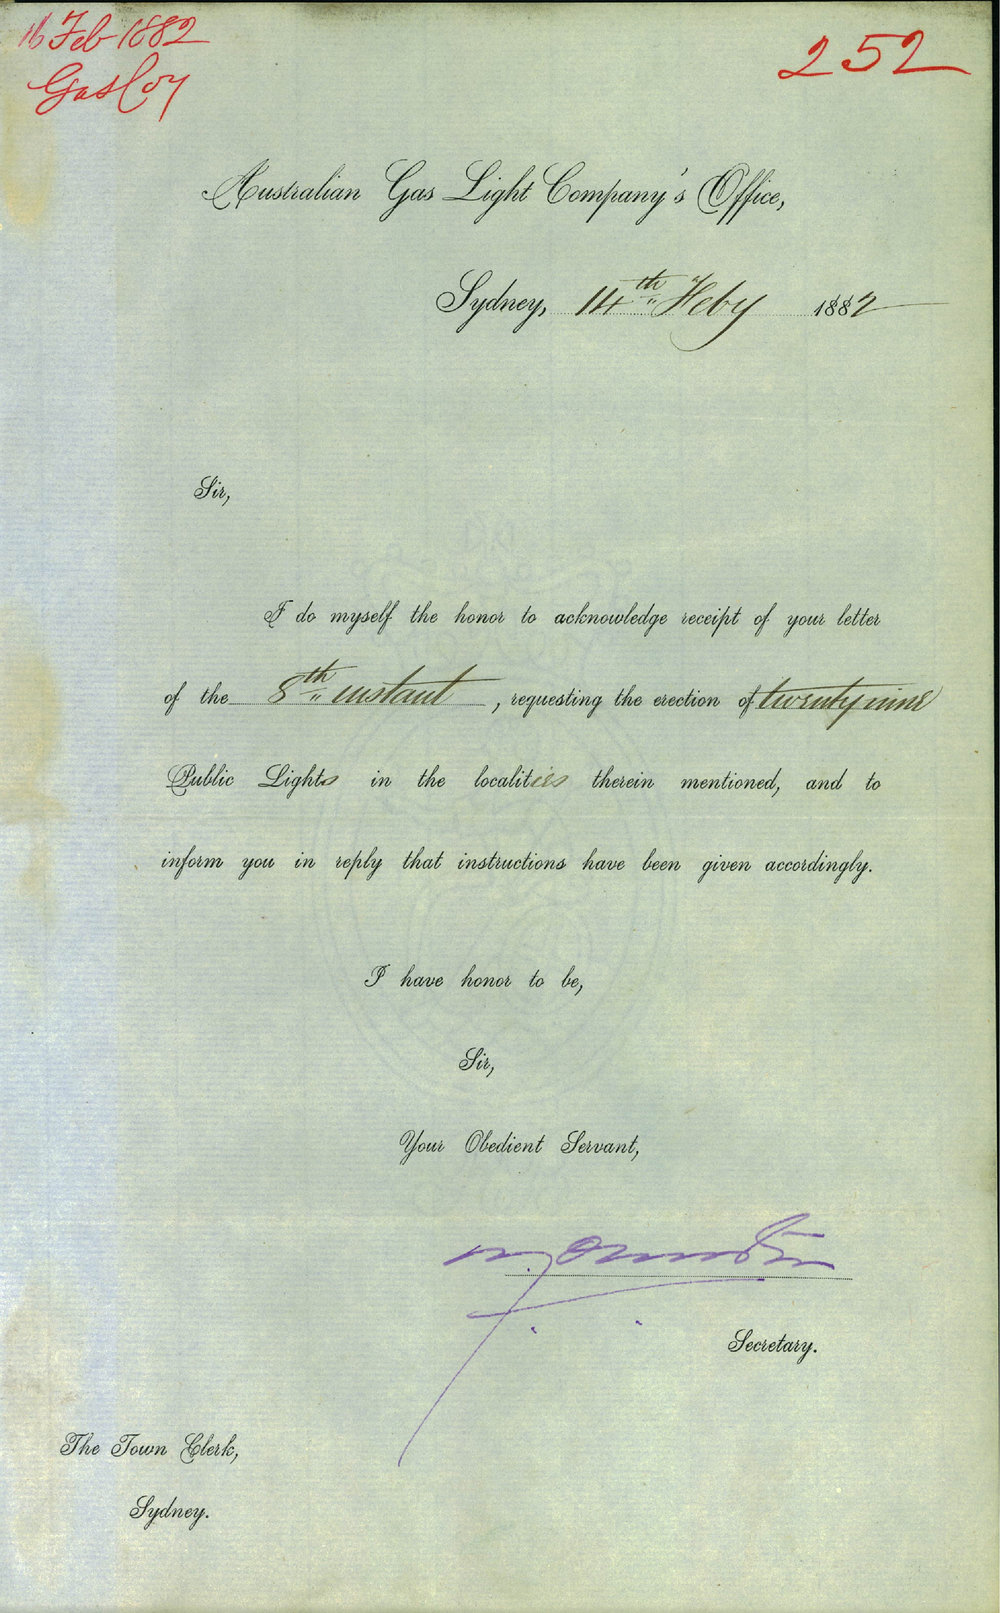 16 Feb 1882
Gas Coy
252
Australian Gas Light Company's Office,
Sydney, 14th Feby 1882
Sir,
I do myself the honor to acknowledge receipt of your letter
of the 8th instant, requesting the erection of twenty nine
Public Lights in the localities therein mentioned, and to
inform you in reply that instructions have been given accordingly.
I have honor to be,
Sir,
Your Obedient Servant,
Secretary.
The Town Clerk,
Sydney.